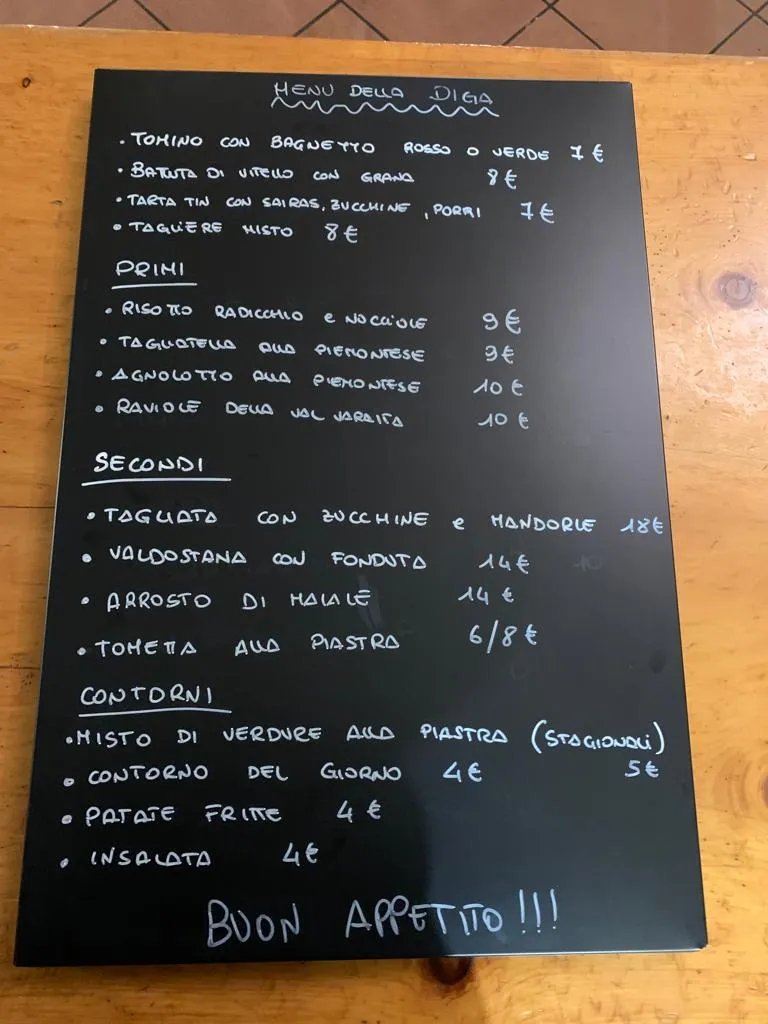 MENU DELLA DIGA
• TOMINO CON BAGNETTO ROSSO O VERDE 7 €
• BATTUTA DI VITELLO CON GRANA 8 €
• TARTA TIN CON SAIRAS, ZUCCHINE, PORRI 7 €
• TAGLIERE MISTO 8 €
PRIMI
• RISOTTO RADICCHIO e NOCCIOLE 9 €
• TAGLIATELLA ALLA PIEMONTESE 9 €
• AGNOLOTTO ALLA PIEMONTESE 10 €
• RAVIOLE DELLA VAL VARAITA 10 €
SECONDI
• TAGLIATA CON ZUCCHINE e MANDORLE 18 €
• VALDOSTANA CON FONDUTA 14 €
• ARROSTO DI MAIALE 14 €
• TOMETTA ALLA PIASTRA 6/8 €
CONTORNI
• MISTO DI VERDURE ALLA PIASTRA (STAGIONALI) 5 €
• CONTORNO DEL GIORNO 4 €
• PATATE FRITTE 4 €
• INSALATA 4 €
BUON APPETITO!!!